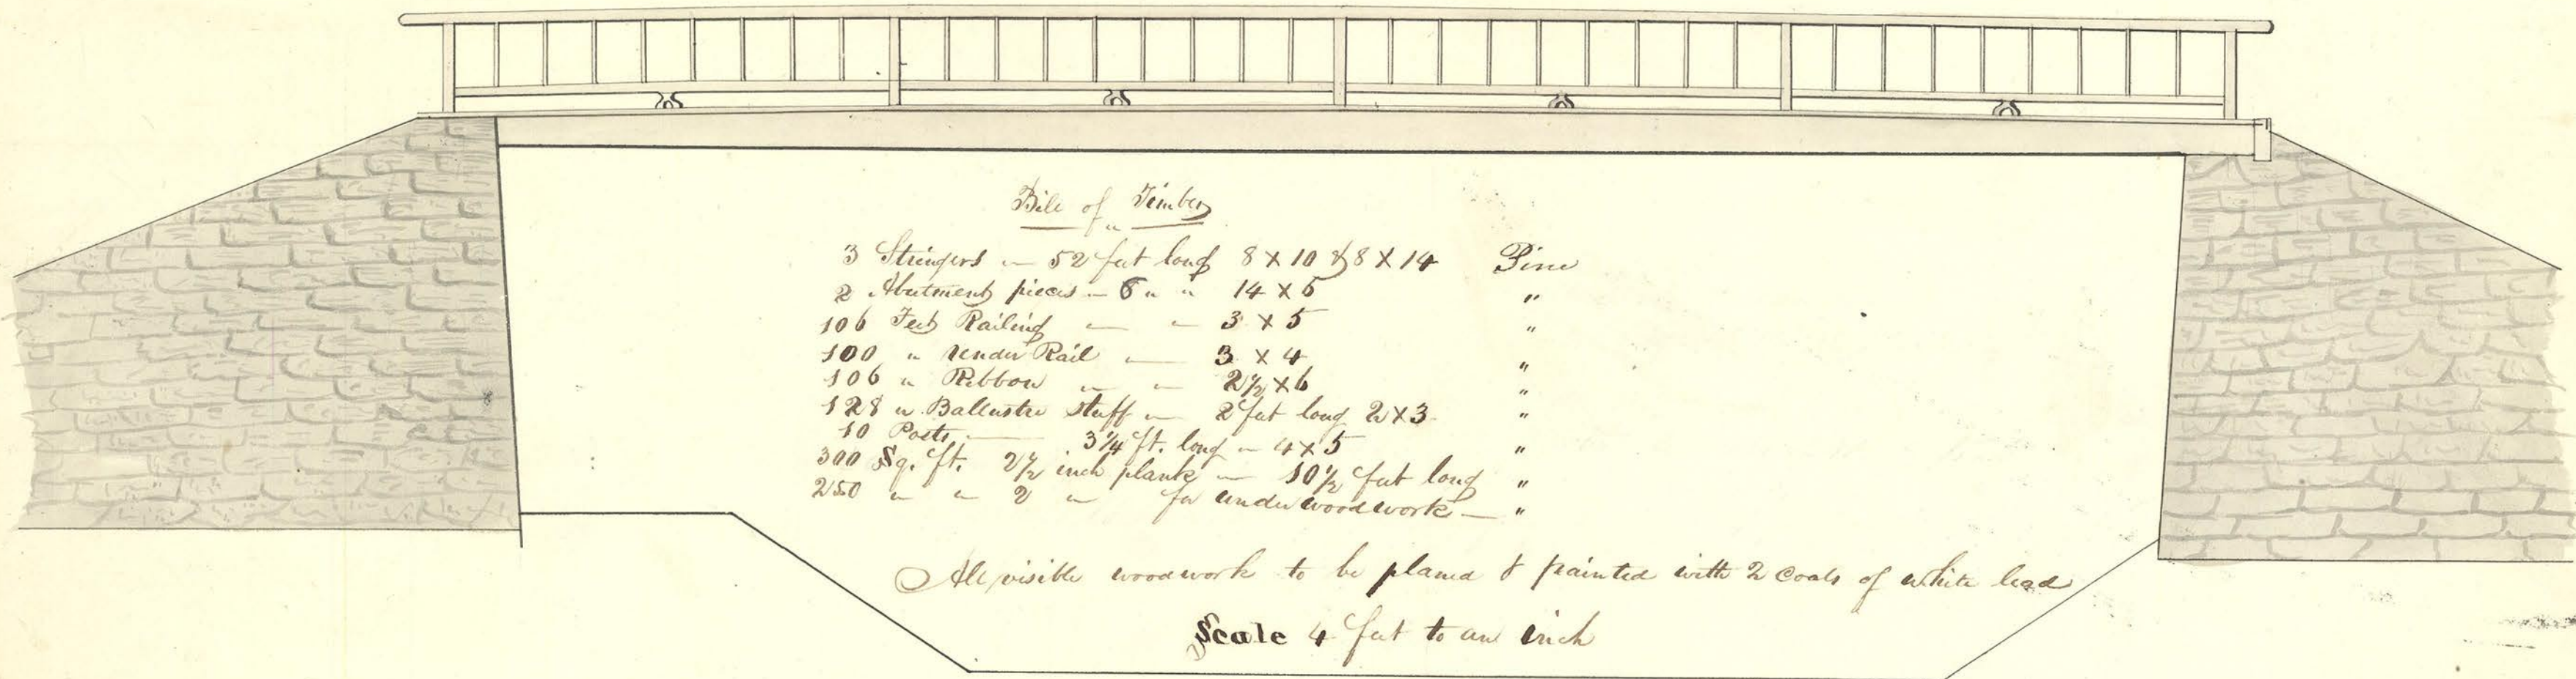 Bill of Timber
3 Stringers — 52 feet long 8 X 10 & 8 X 14 Pine
2 Abutment pieces — 6 " " 14 X 6 "
106 Feet Railing — — 3 X 5 "
100 " Under Rail — 3 X 4 "
106 " Ribbon — — 2½ X 6 "
128 " Ballustre stuff — 2 feet long 2 X 3 "
10 Posts — 3¼ ft. long — 4 X 5 "
300 Sq. ft. 2½ inch plank — 10½ feet long "
250 " " 2 " for under woodwork — "
All visible woodwork to be planed & painted with 2 coats of white lead
Scale 4 feet to an inch